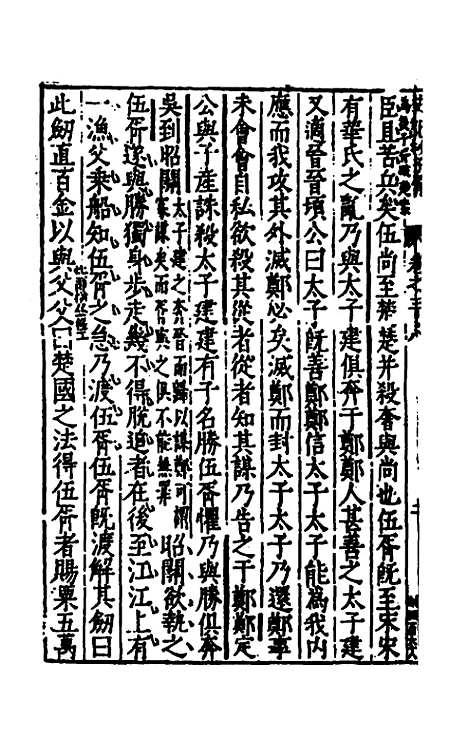 臣且苦兵矣伍尚至楚楚并殺奢與尚也伍胥既至宋宋
有華氏之亂乃與太子建俱奔于鄭鄭人甚善之太子建
又適晉晉頃公曰太子既善鄭鄭信太子太子能為我内
應而我攻其外滅鄭必矣滅鄭而封太子太子乃還鄭事
未會會自私欲殺其從者從者知其謀乃告之于鄭鄭定
公與子產誅殺太子建建有子名勝伍胥懼乃與勝俱奔
吳到昭關太子建之奔晉而歸以謀鄭可謂寡謀矣而晉與之俱不能無罪昭關欲執之
伍胥遂與勝獨身步走幾不得脫追者在後至江江上有
一漁父乘船知伍胥之急乃渡伍胥伍胥既渡解其劒曰
此劒直百金以與父父曰楚國之法得伍胥者賜粟五萬